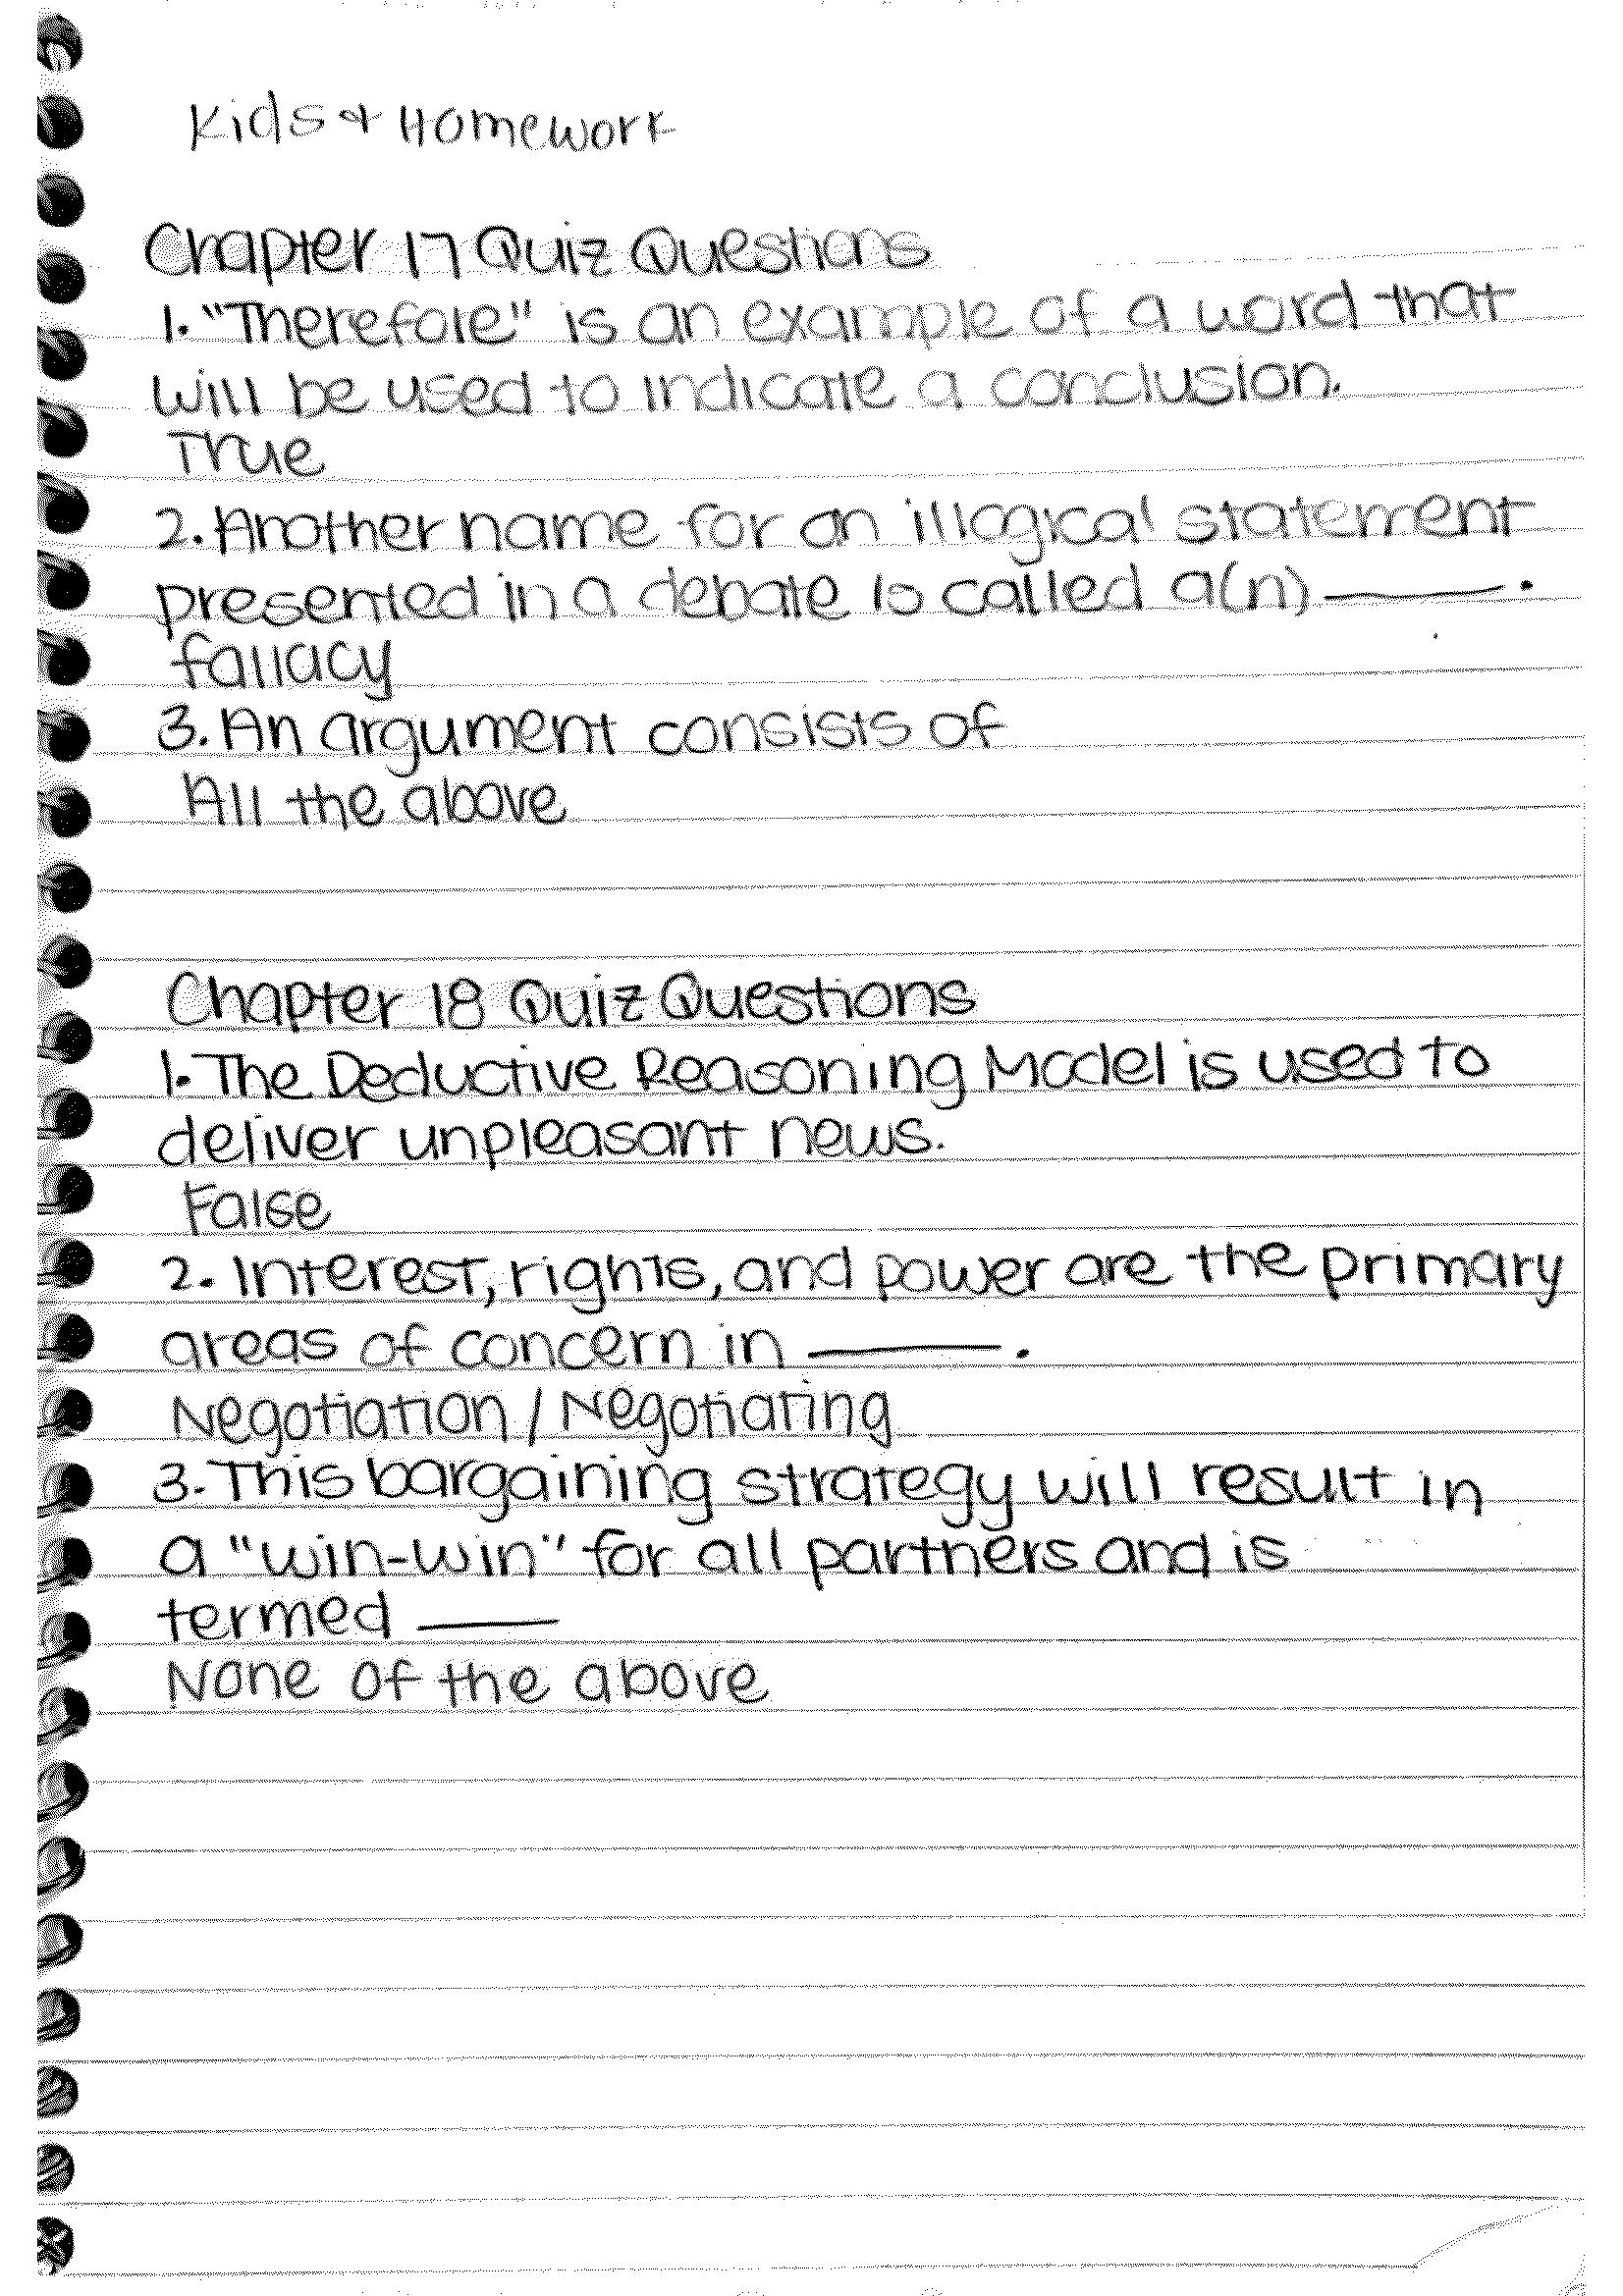 Kids & Homework
Chapter 17 Quiz Questions
1. "Therefore" is an example of a word that
will be used to indicate a conclusion.
True
2. Another name for an illogical statement
presented in a debate is called a(n) ______.
fallacy
3. An argument consists of
All the above
Chapter 18 Quiz Questions
1. The Deductive Reasoning Model is used to
deliver unpleasant news.
False
2. Interest, rights, and power are the primary
areas of concern in ______.
Negotiation / Negotiating
3. This bargaining strategy will result in
a "win-win" for all partners and is
termed ______
None of the above